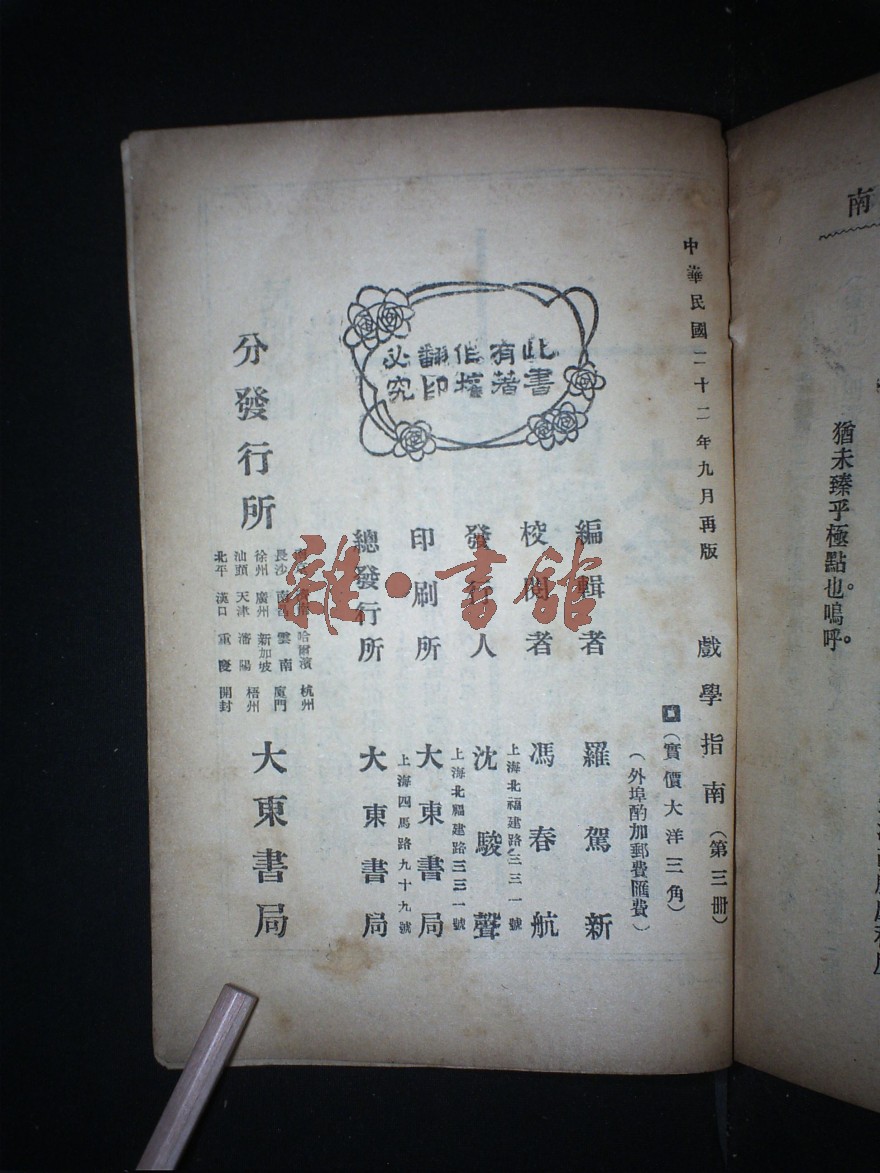 中華民國二十二年九月再版
戲學指南(第三冊)
(實價大洋三角)
(外埠酌加郵費匯費)
此書
有著
作權
翻印
必究
編輯者 羅駕新
校閱者 馮春航
上海北福建路三三一號
發行人 沈駿聲
上海北福建路三三一號
印刷所 大東書局
上海四馬路九十九號
總發行所 大東書局
分發行所
哈爾濱 杭州
長沙 雲南 廈門
徐州 廣州 新加坡 梧州
汕頭 天津 瀋陽
北平 漢口 重慶 開封
大東書局
南
猶未臻乎極點也。嗚呼。
雜·書館